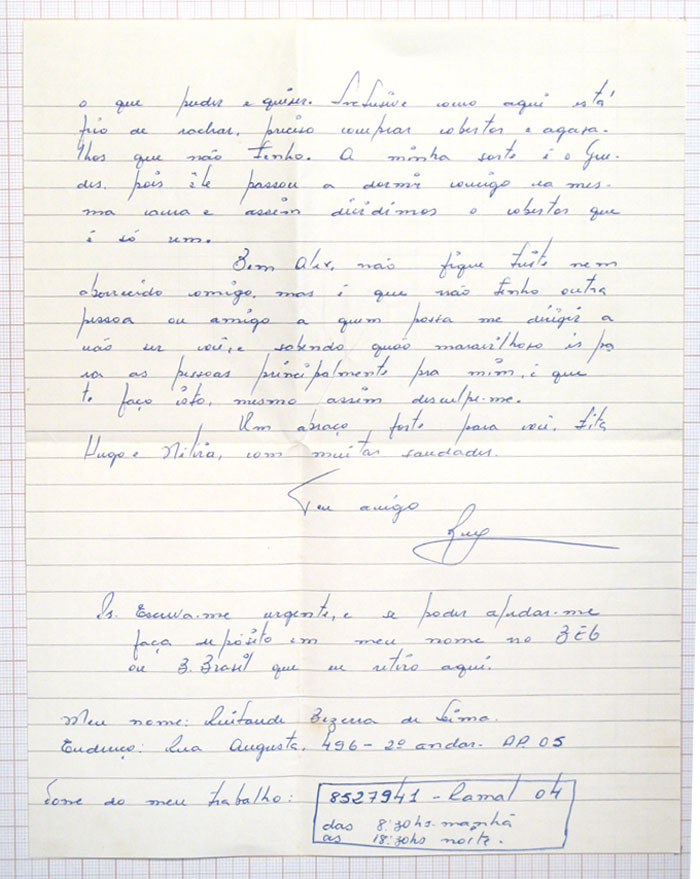 o que puder e quiser. Inclusive como aqui está
frio de rachar, preciso comprar cobertor e agasa-
lhos que não tenho. A minha sorte é o Gue-
des, pois êle passou a dormir comigo na mes-
ma cama e assim dividimos o cobertor que
é só um.
Bem Alex, não fique triste nem
aborrecido comigo, mas é que não tenho outra
pessoa ou amigo a quem possa me dirigir a
não ser você, e sabendo quão maravilhoso és pa
ra as pessoas principalmente pra mim, é que
te faço isto, mesmo assim desculpe-me.
Um abraço, forte para você,
Hugo e com muitas saudades.
Teu amigo
Ruy
Ps. Escreva-me urgente, e se poder ajudar-me
faça depósito em meu nome no BEG
ou B. Brasil que eu retiro aqui.
Meu nome: Bezerra de Lima.
Endereço: Rua Augusta, 496 - 2º andar. AP. 05
Fone do meu trabalho: 8527941 - Ramal 04
das 8:30hs. manhã
as 18:30hs noite.